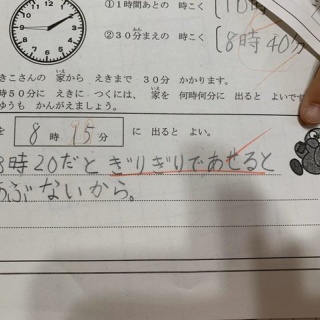 ①1時間あとの 時こく
②30分まえの 時こく
8時40分
きこさんの 家から えきまで 30分 かかります。
時50分に えきに つくには、 家を 何時何分に 出ると よいです
ゆうも かんがえましょう。
を 8時 15分 に 出ると よい。
8時20だと ぎりぎりであせると
あぶないから。